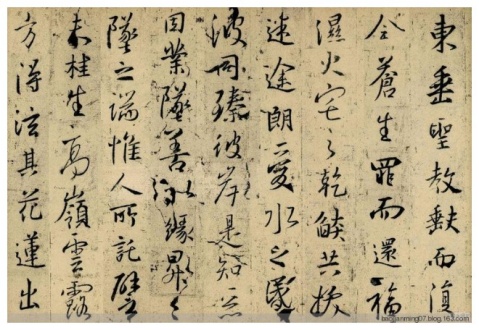 東垂聖教缺而復
全蒼生罪而還福
濕火宅之乾燄共拔
迷途朗愛水之昏
波同臻彼岸是知惡
因業墜善以緣昇々
墜之端惟人所託譬
夫桂生高嶺雲露
方得泫其花蓮出